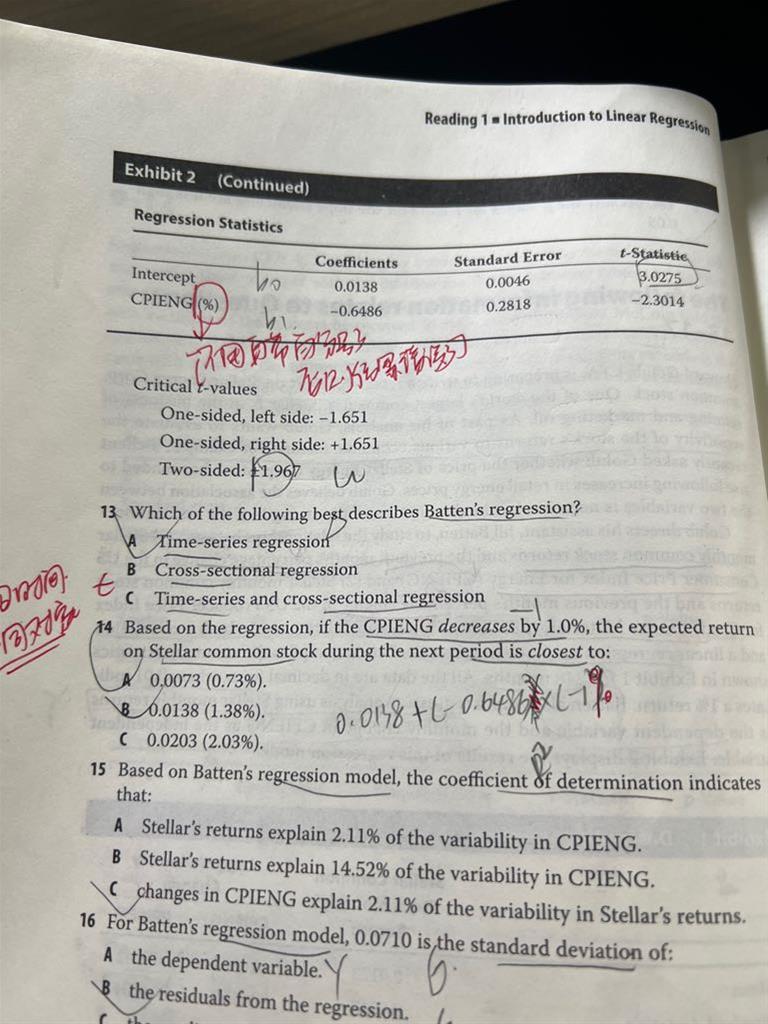 Reading 1 ■ Introduction to Linear Regression
Exhibit 2 (Continued)
Regression Statistics
Coefficients Standard Error t-Statistic
Intercept b₀ 0.0138 0.0046 3.0275
CPIENG (%) b₁ -0.6486 0.2818 −2.3014
Critical t-values
One-sided, left side: −1.651
One-sided, right side: +1.651
Two-sided: ±1.967
13 Which of the following best describes Batten's regression?
A Time-series regression
B Cross-sectional regression
C Time-series and cross-sectional regression
14 Based on the regression, if the CPIENG decreases by 1.0%, the expected return
on Stellar common stock during the next period is closest to:
A 0.0073 (0.73%).
B 0.0138 (1.38%).
0.0138 + (-0.6486) × (-1%
C 0.0203 (2.03%).
R²
15 Based on Batten's regression model, the coefficient of determination indicates
that:
A Stellar's returns explain 2.11% of the variability in CPIENG.
B Stellar's returns explain 14.52% of the variability in CPIENG.
C changes in CPIENG explain 2.11% of the variability in Stellar's returns.
16 For Batten's regression model, 0.0710 is the standard deviation of:
A the dependent variable. Y
B the residuals from the regression.